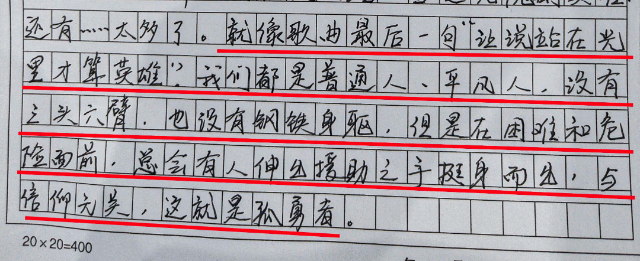 还有……太多了。就像歌曲最后一句“谁说站在光
里才算英雄?”我们都是普通人、平凡人,没有
三头六臂,也没有钢铁身躯,但是在困难和危
险面前,总会有人伸出援助之手挺身而出,与
信仰无关,这就是孤勇者。
20×20=400